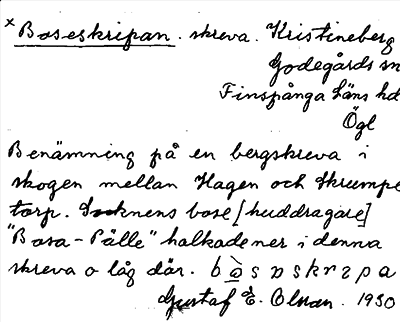 × Boseskripan. skreva. Kristineberg
Godegårds sn
Finspånga läns hd
Ögl
Benämning på en bergskreva i
skogen mellan Hagen och Skrumpe
torp. Socknens bose [huddragare]
"Bosa-Pålle" halkade ner i denna
skreva o låg där.
Gustaf E. Olson. 1930